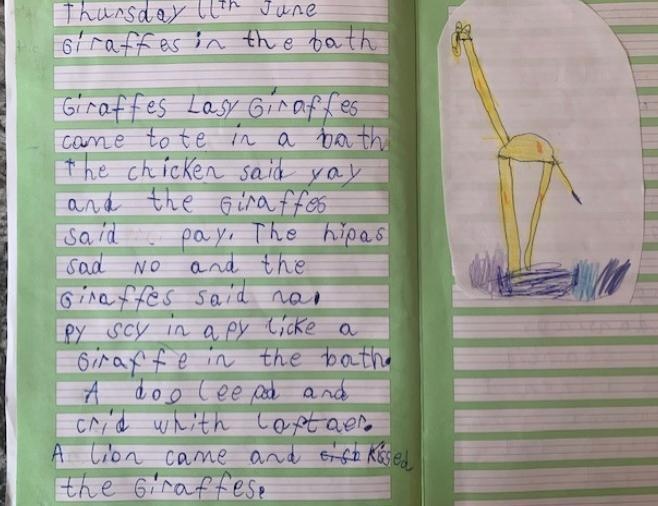 Thursday 11th June
Giraffes in the bath
Giraffes Lasy Giraffes
came to te in a bath
the chicken said yay
and the Giraffes
said pay. The hipas
sad No and the
Giraffes said na.
py scy in a py licke a
Giraffe in the bath.
A dog leepd and
crid whith laftaer.
A lion came and kissed
the Giraffes.